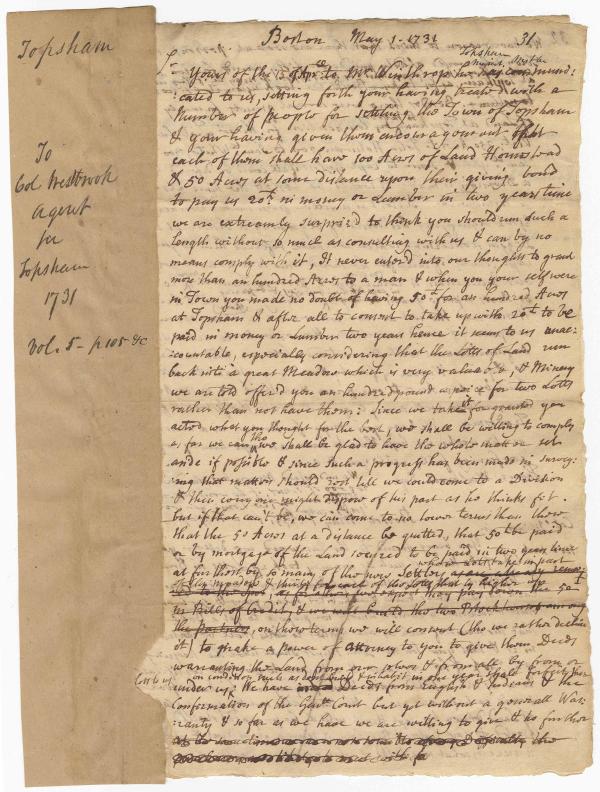 Topsham
To
Col Westbrook
Agent
for
Topsham
1731
Vol. 5 - p 105 &c
Boston May 1. 1731
31
Topsham
Sr
Yours of the 13 of Apr. to Mr. Winthrop he has communi:
:cated to us, setting forth your having treated with a
Number of people for settling the Town of Topsham
& your having given them encouragement that
each of them shall have 100 Acres of Land Homestead
& 50 Acres at some distance upon their giving bond
to pay us 20lb in money or Lumber in two years time
we are extreamly surprized to think you should run such a
length without so much as consulting with us & can by no
means comply with it, It never enter'd into our thoughts to grant
more than an hundred Acres to a man & when you your self were
in Town you made no doubt of having 50lb for an hundred Acres
at Topsham & after all to consent to take up with 20lb to be
paid in money or Lumber two years hence it seems to us unac:
:countable, especially considering that the Lotts of Land run
back into a great Meadow which is very valuable, & Minery
we are told offer'd you an hundred pound a peice for two Lotts
rather than not have them: Since we take it for granted you
acted what you thought for the best, we shall be willing to comply
as far as we can tho we shall be glad to have the whole matter set
aside if possible & since such a progress has been made in survey:
:ing that matters should rest till we could come to a Division
& then every one might dispose of his part as he thinks fit.
but if that can't be, we can come to no lower terms than these
that the 50 Acres at a distance be quitted, that 50lb be paid
or by mortgage of the Land secured to be paid in two years time
at furthest by so many of the new Settlers
in Bills of Credit, & we will build the two Blockhouses among
the partners, on those terms we will consent (tho we rather decline
it) to make a power of Attorney to you to give them Deeds
warranting the Land from our selves & from all by from or
under us, We have Deeds from English & Indians & the
on condition such as dont build & inhabit in one year shall forfeit their
Lotts to us
Confirmation of the Genl Court but yet without a generall War:
:ranty & so far as we have we are willing to give & no further